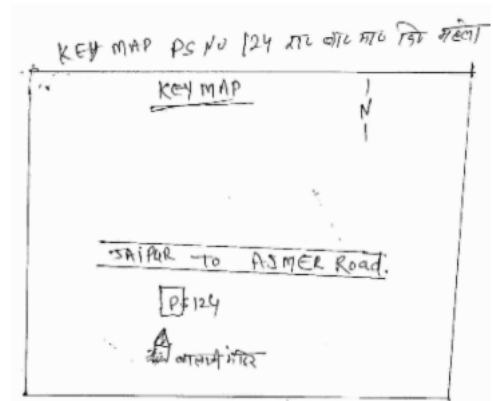 KEY MAP PS NO 124 रा० बा० मा० वि० महला
KEY MAP
N
JAIPUR to AJMER Road.
P 124
बालाजी मंदिर